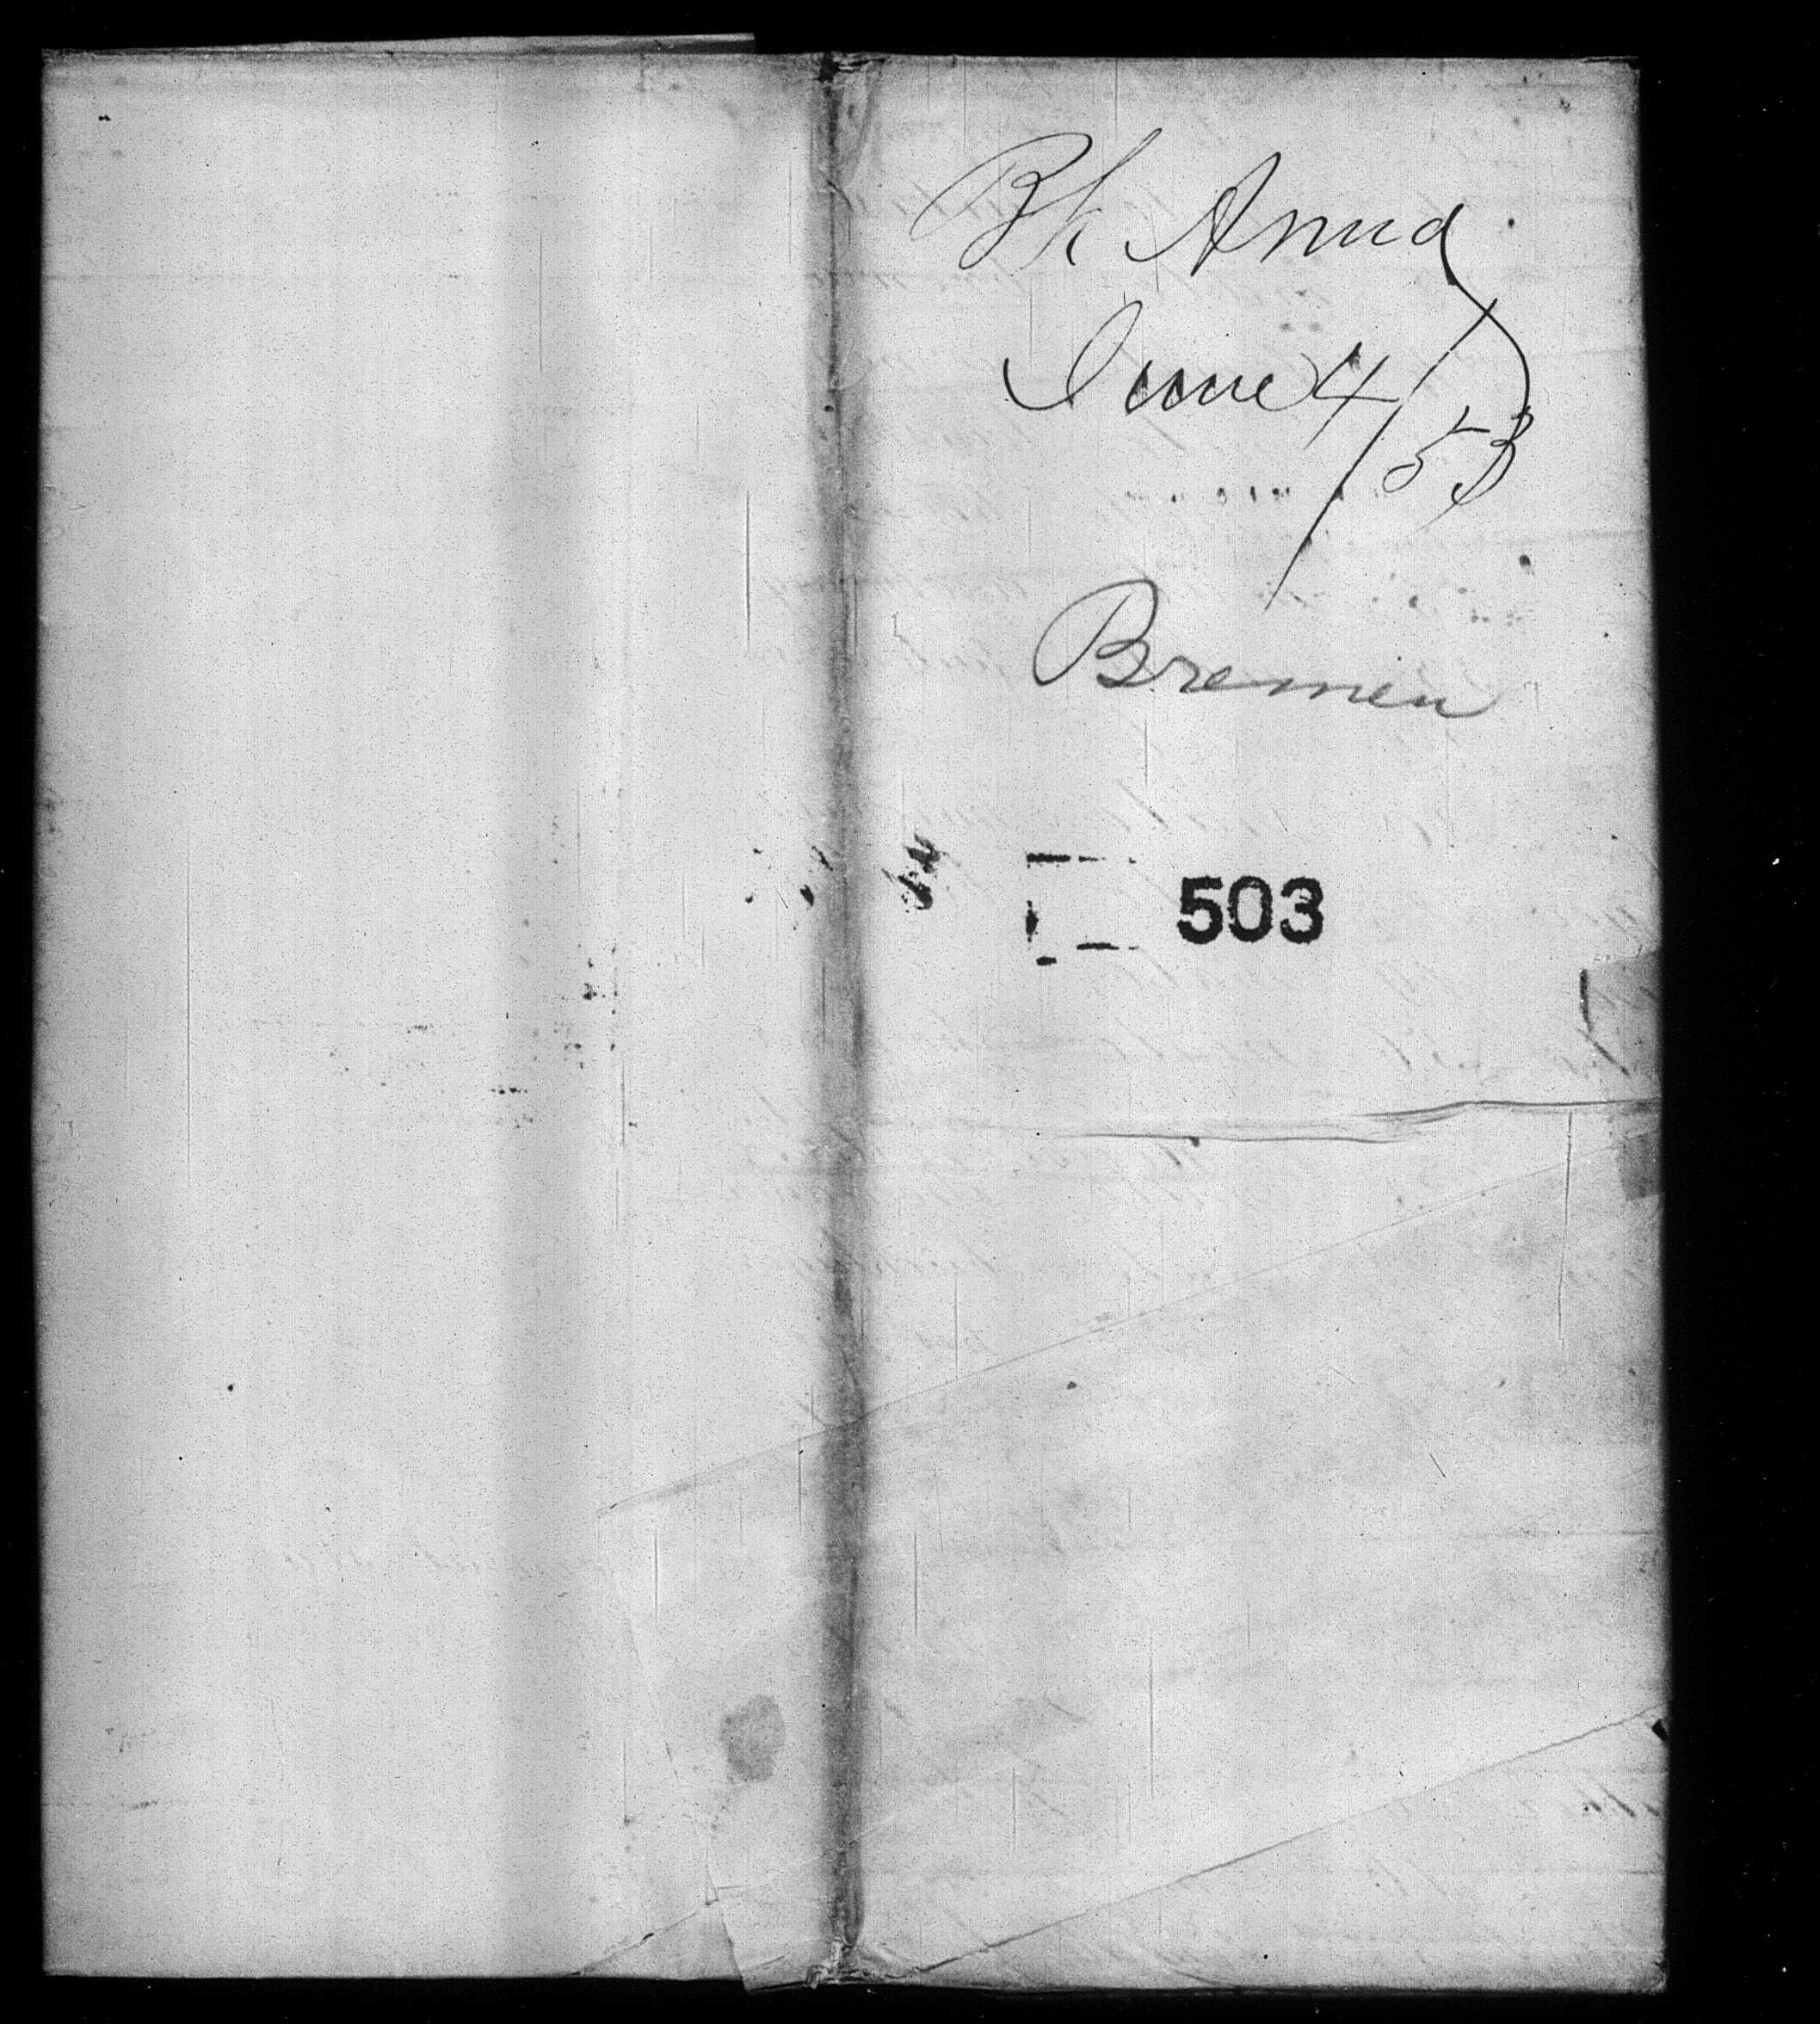 Bk Anna
June 4/53
Bremen
503